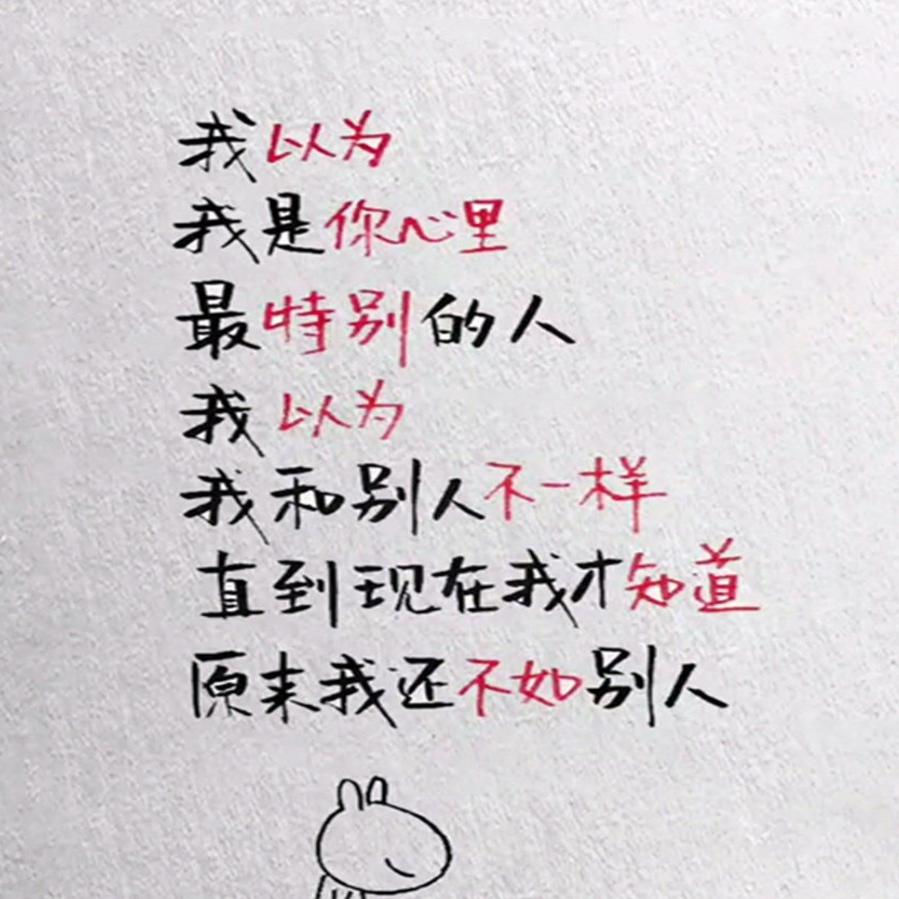 我以为
我是你心里
最特别的人
我以为
我和别人不一样
直到现在我才知道
原来我还不如别人